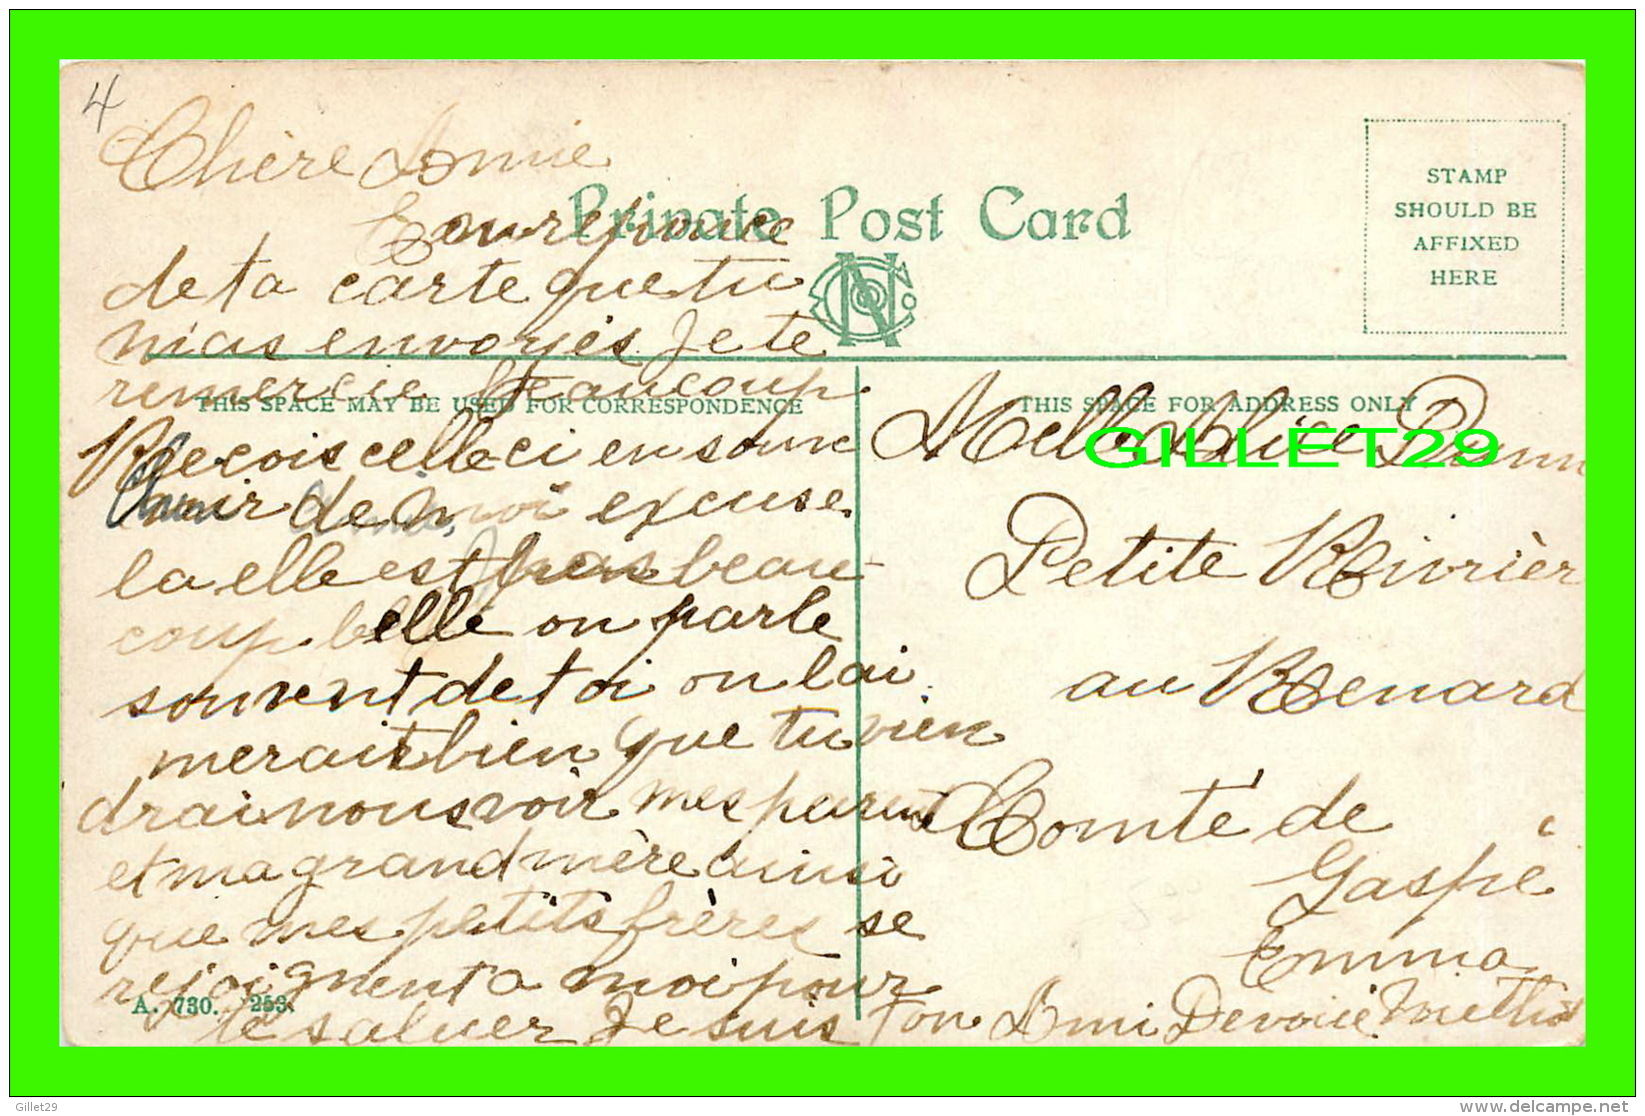 4
Chère Amie
En reponce
de ta carte que tu
m'as envoyés Je te
remercie beaucoup
Reçois celle ci en souve
nir de moi excuse
la elle est pas beau-
coup belle on parle
souvent de toi on lai
merait bien que tu vien
drai nous voir mes parents
et ma grand mère ainsi
que mes petits frères se
rejoignent a moi pour
te saluer Je suis Ton Ami
Private Post Card
THIS SPACE MAY BE USED FOR CORRESPONDENCE
A. 730. 253.
STAMP
SHOULD BE
AFFIXED
HERE
THIS SPACE FOR ADDRESS ONLY
GILLET29
Melle Alice Dunn
Petite Rivièr
au Renard
Comté de
Gaspé
Emma
Gillet29
www.delcampe.net